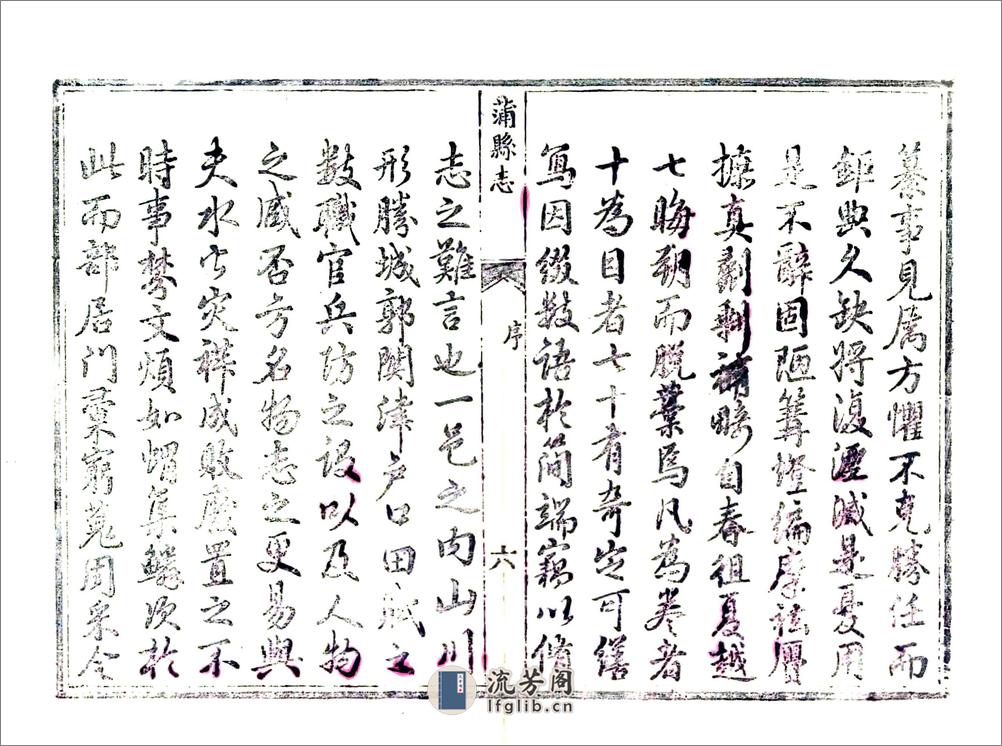 纂事見屬方懼不克勝任而
鉅典久缺將復湮滅是憂用
是不辭固陋篝燈編摩訛
摭真剔剩補
七晦朔而脫藁焉凡為卷者
十為目者七十有奇定可繕
寫因綴數語於簡端竊以脩
蒲縣志
序
六
志之難言也一邑之内山川
形勝城郭關津户口田賦之
數職官兵防之設以及人物
之臧否方名物志之更易與
夫水火灾祥成敗廢置之不
時事棼文煩如蝟集鱗次於
此而部居門彙窮蒐周采令
流芳阁
lfglib.cn